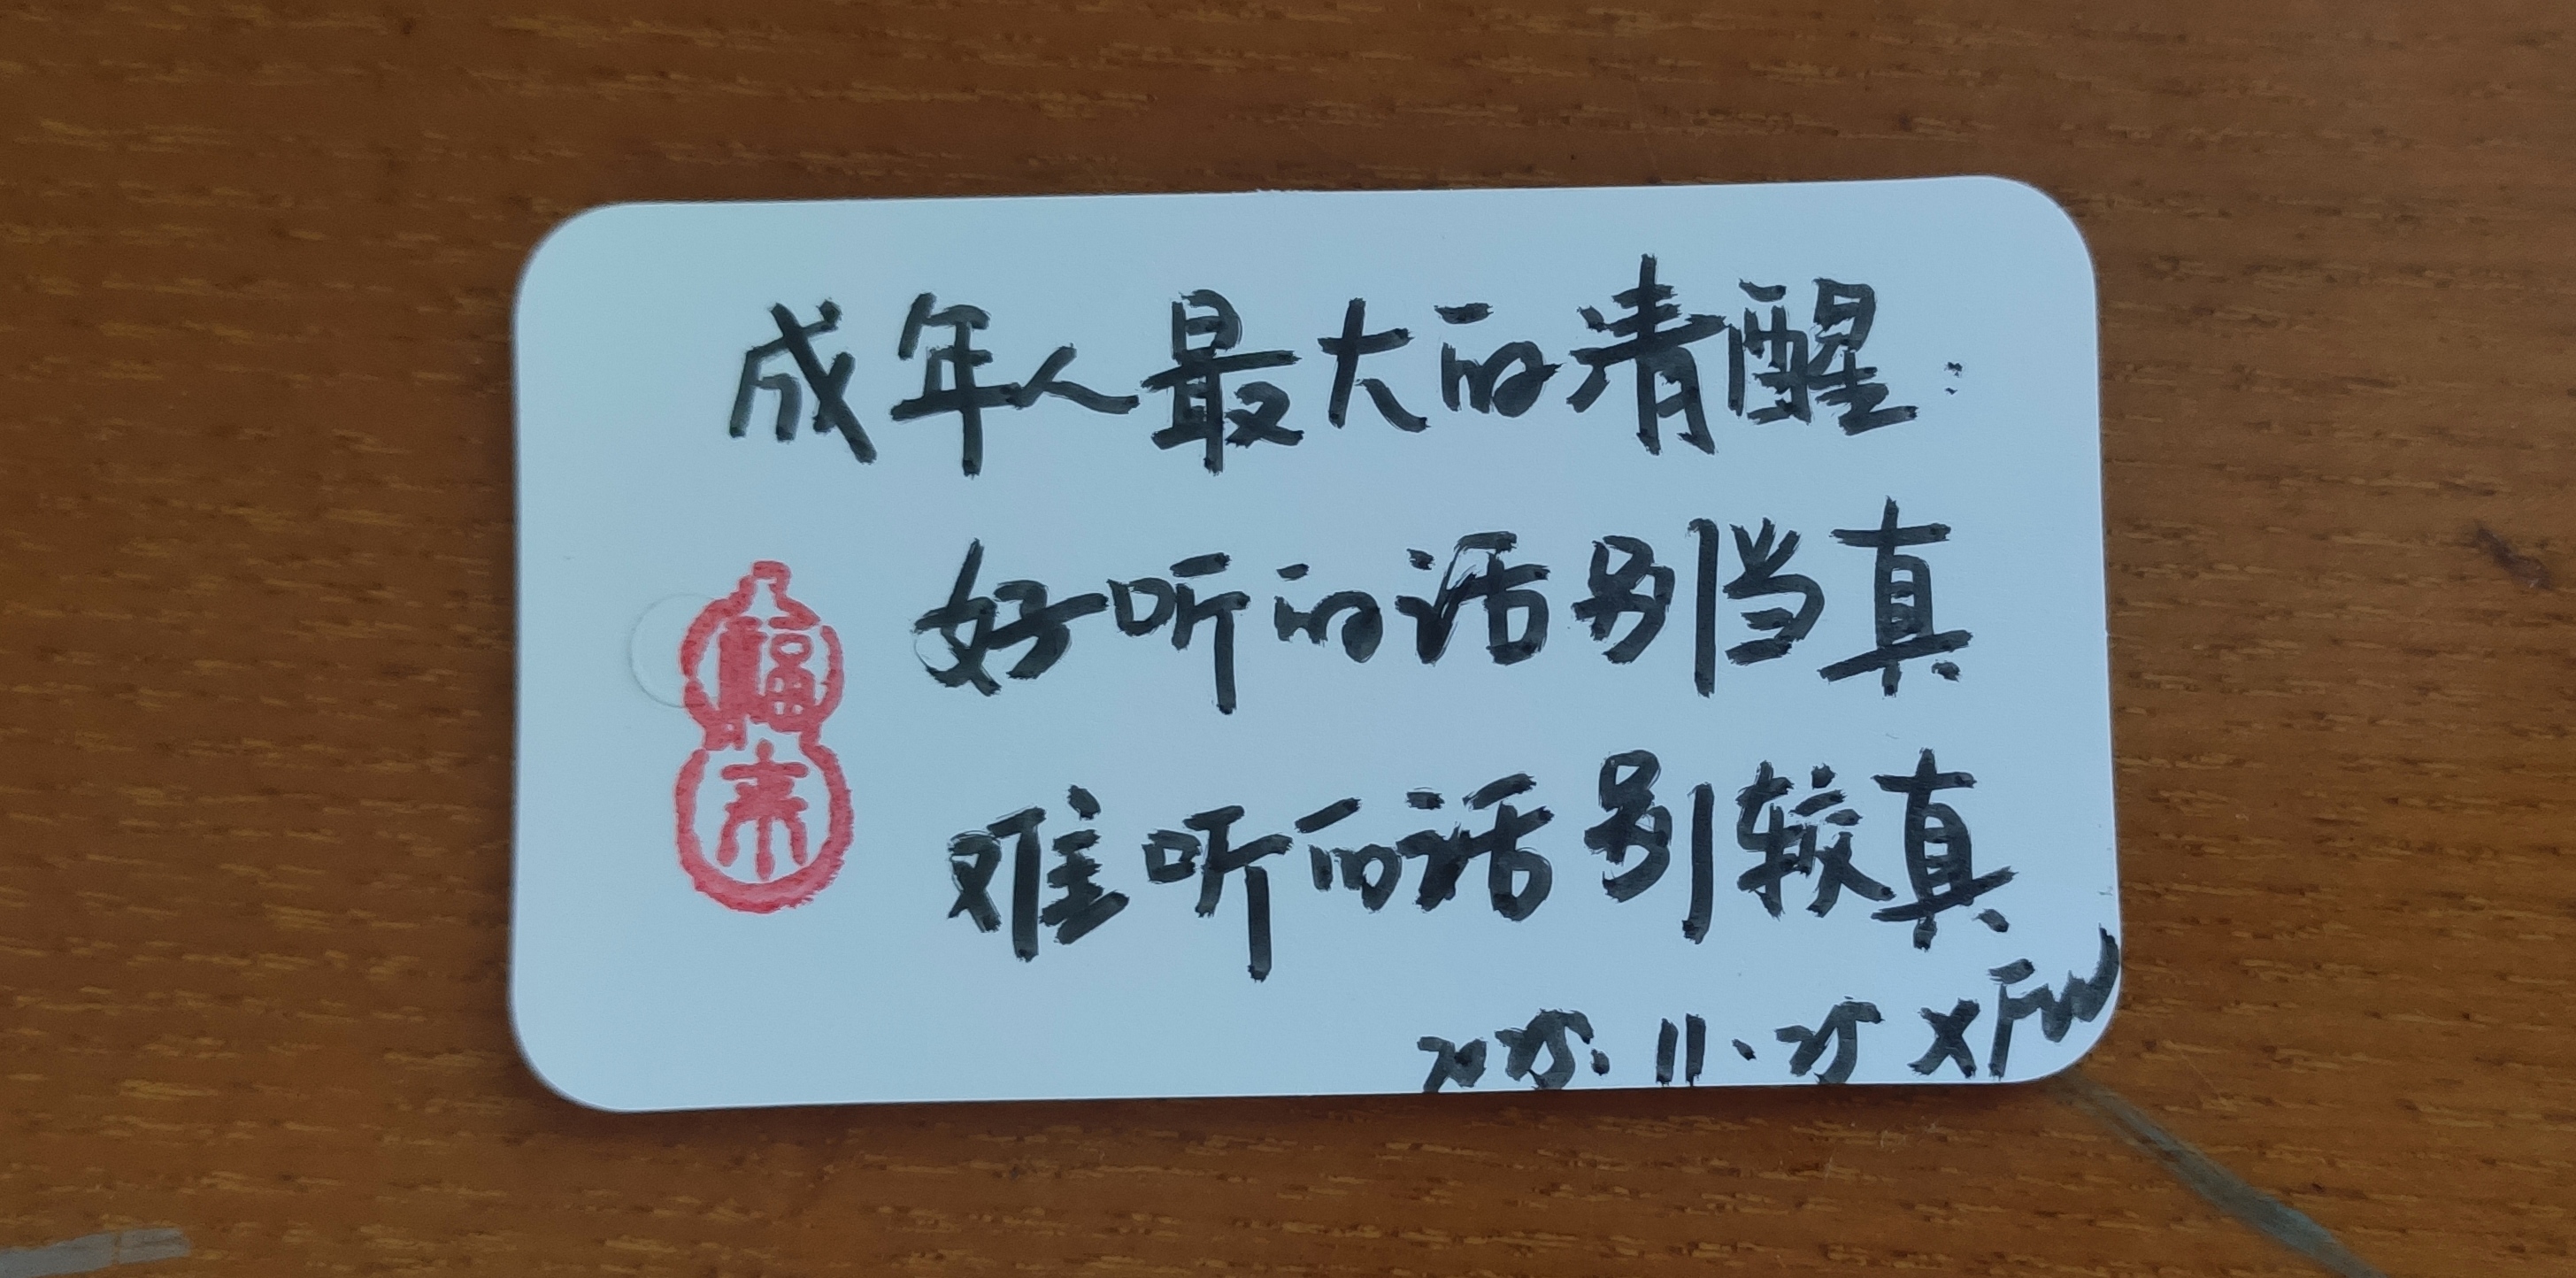 成年人最大的清醒:
好听的话别当真
难听的话别较真
福
来
2025.11.25 XFW